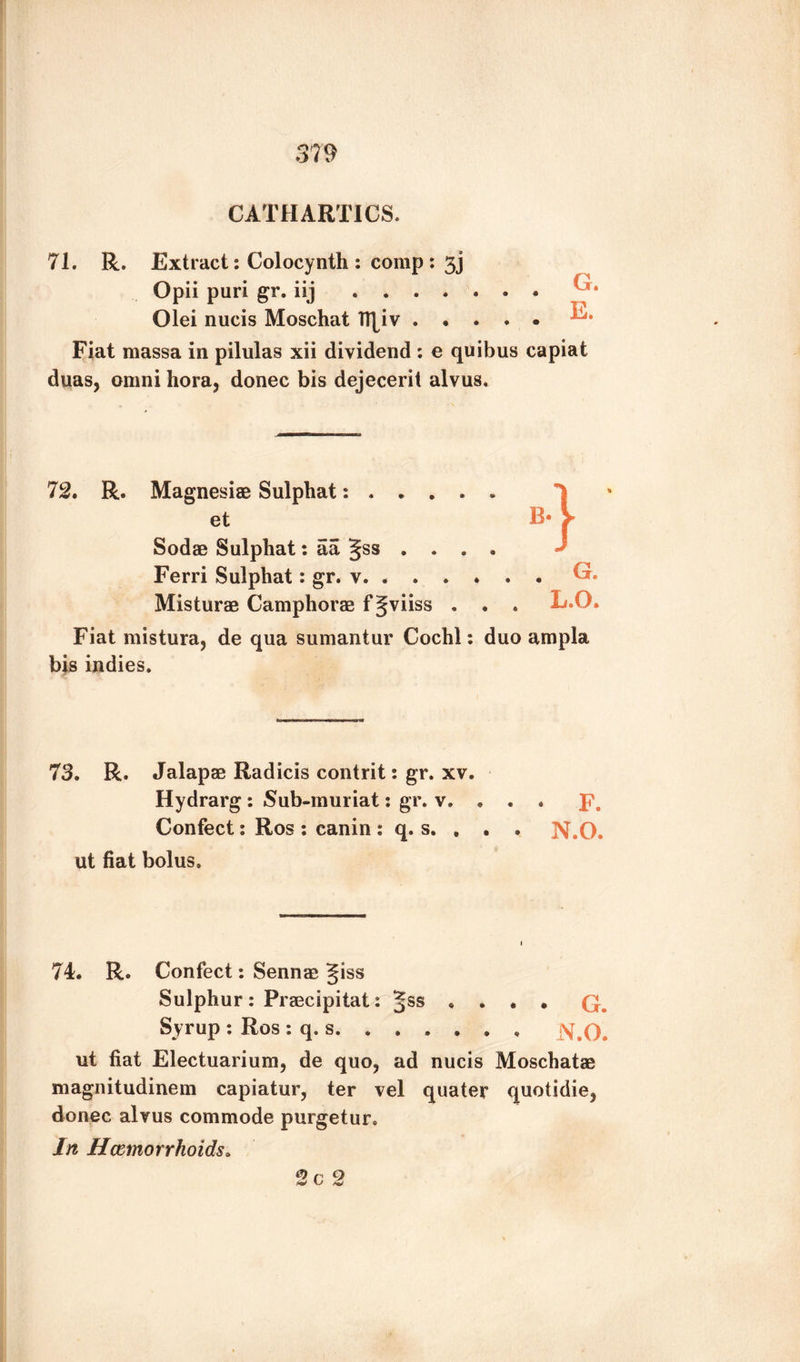 379
CATHARTICS.
71. R. Extract: Colocynth: comp: ʒj
Opii puri gr. iij . . . . . . . G.
Olei nucis Moschat ♏iv . . . . . E.
Fiat massa in pilulas xii dividend: e quibus capiat
duas, omni hora, donec bis dejecerit alvus.
72. R. Magnesiæ Sulphat: . . . . .
et B. }
Sodæ Sulphat: āā ℥ss . . . .
Ferri Sulphat: gr. v. . . . . . . G.
Misturæ Camphoræ f℥viiss . . . L.O.
Fiat mistura, de qua sumantur Cochl: duo ampla
bis indies.
73. R. Jalapæ Radicis contrit: gr. xv.
Hydrarg: Sub-muriat: gr. v. . . . F.
Confect: Ros: canin: q. s. . . . N.O.
ut fiat bolus.
74. R. Confect: Sennæ ℥iss
Sulphur: Præcipitat: ℥ss . . . . G.
Syrup: Ros: q. s. . . . . . . N.O.
ut fiat Electuarium, de quo, ad nucis Moschatæ
magnitudinem capiatur, ter vel quater quotidie,
donec alvus commode purgetur.
In Hœmorrhoids.
2 c 2